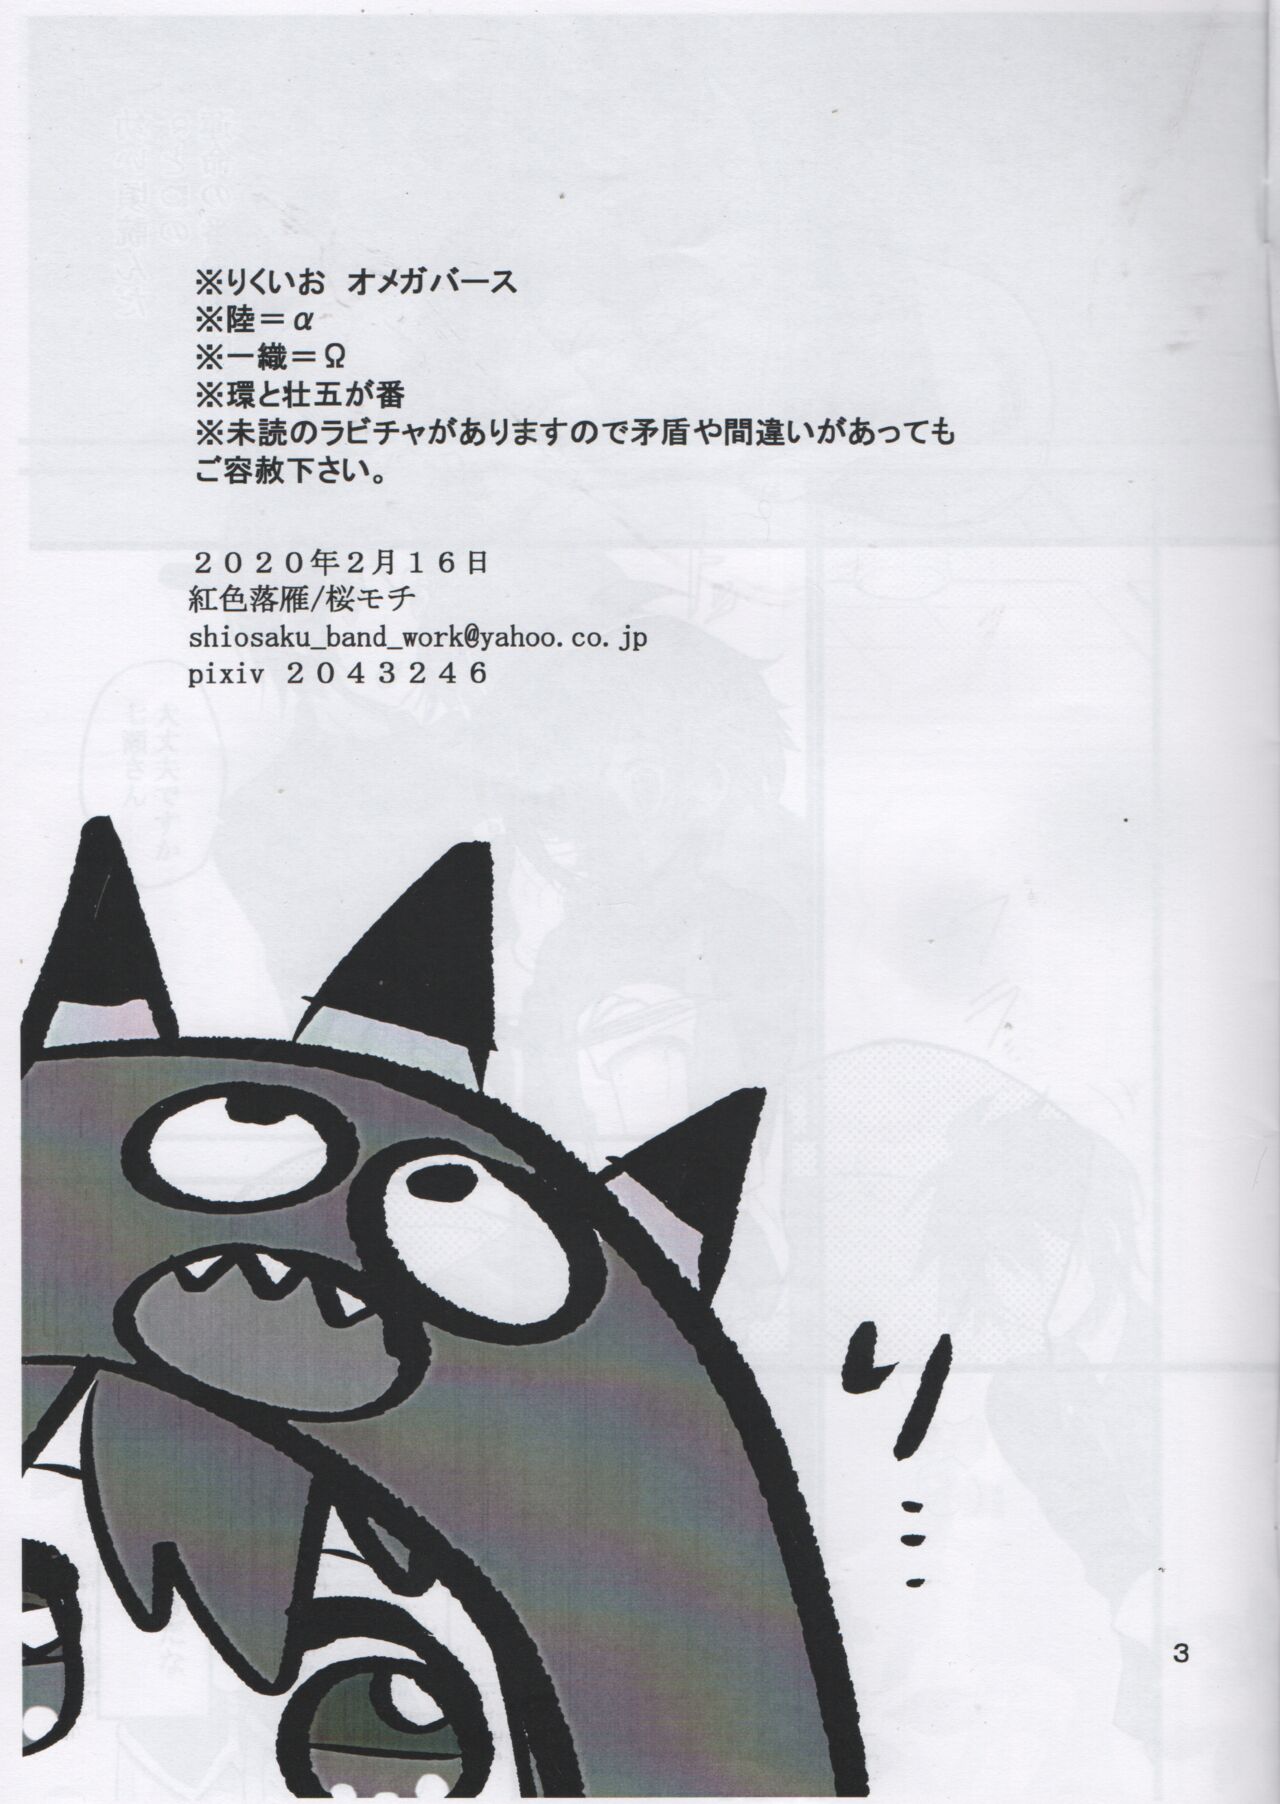 ※りくいお　オメガバース
※陸＝α
※一織＝Ω
※環と壮五が番
※未読のラビチャがありますので矛盾や間違いがあっても
ご容赦下さい。
２０２０年２月１６日
紅色落雁/桜モチ
shiosaku_band_work@yahoo.co.jp
pixiv ２０４３２４６
大丈夫ですか
お隣さん
リ…
3